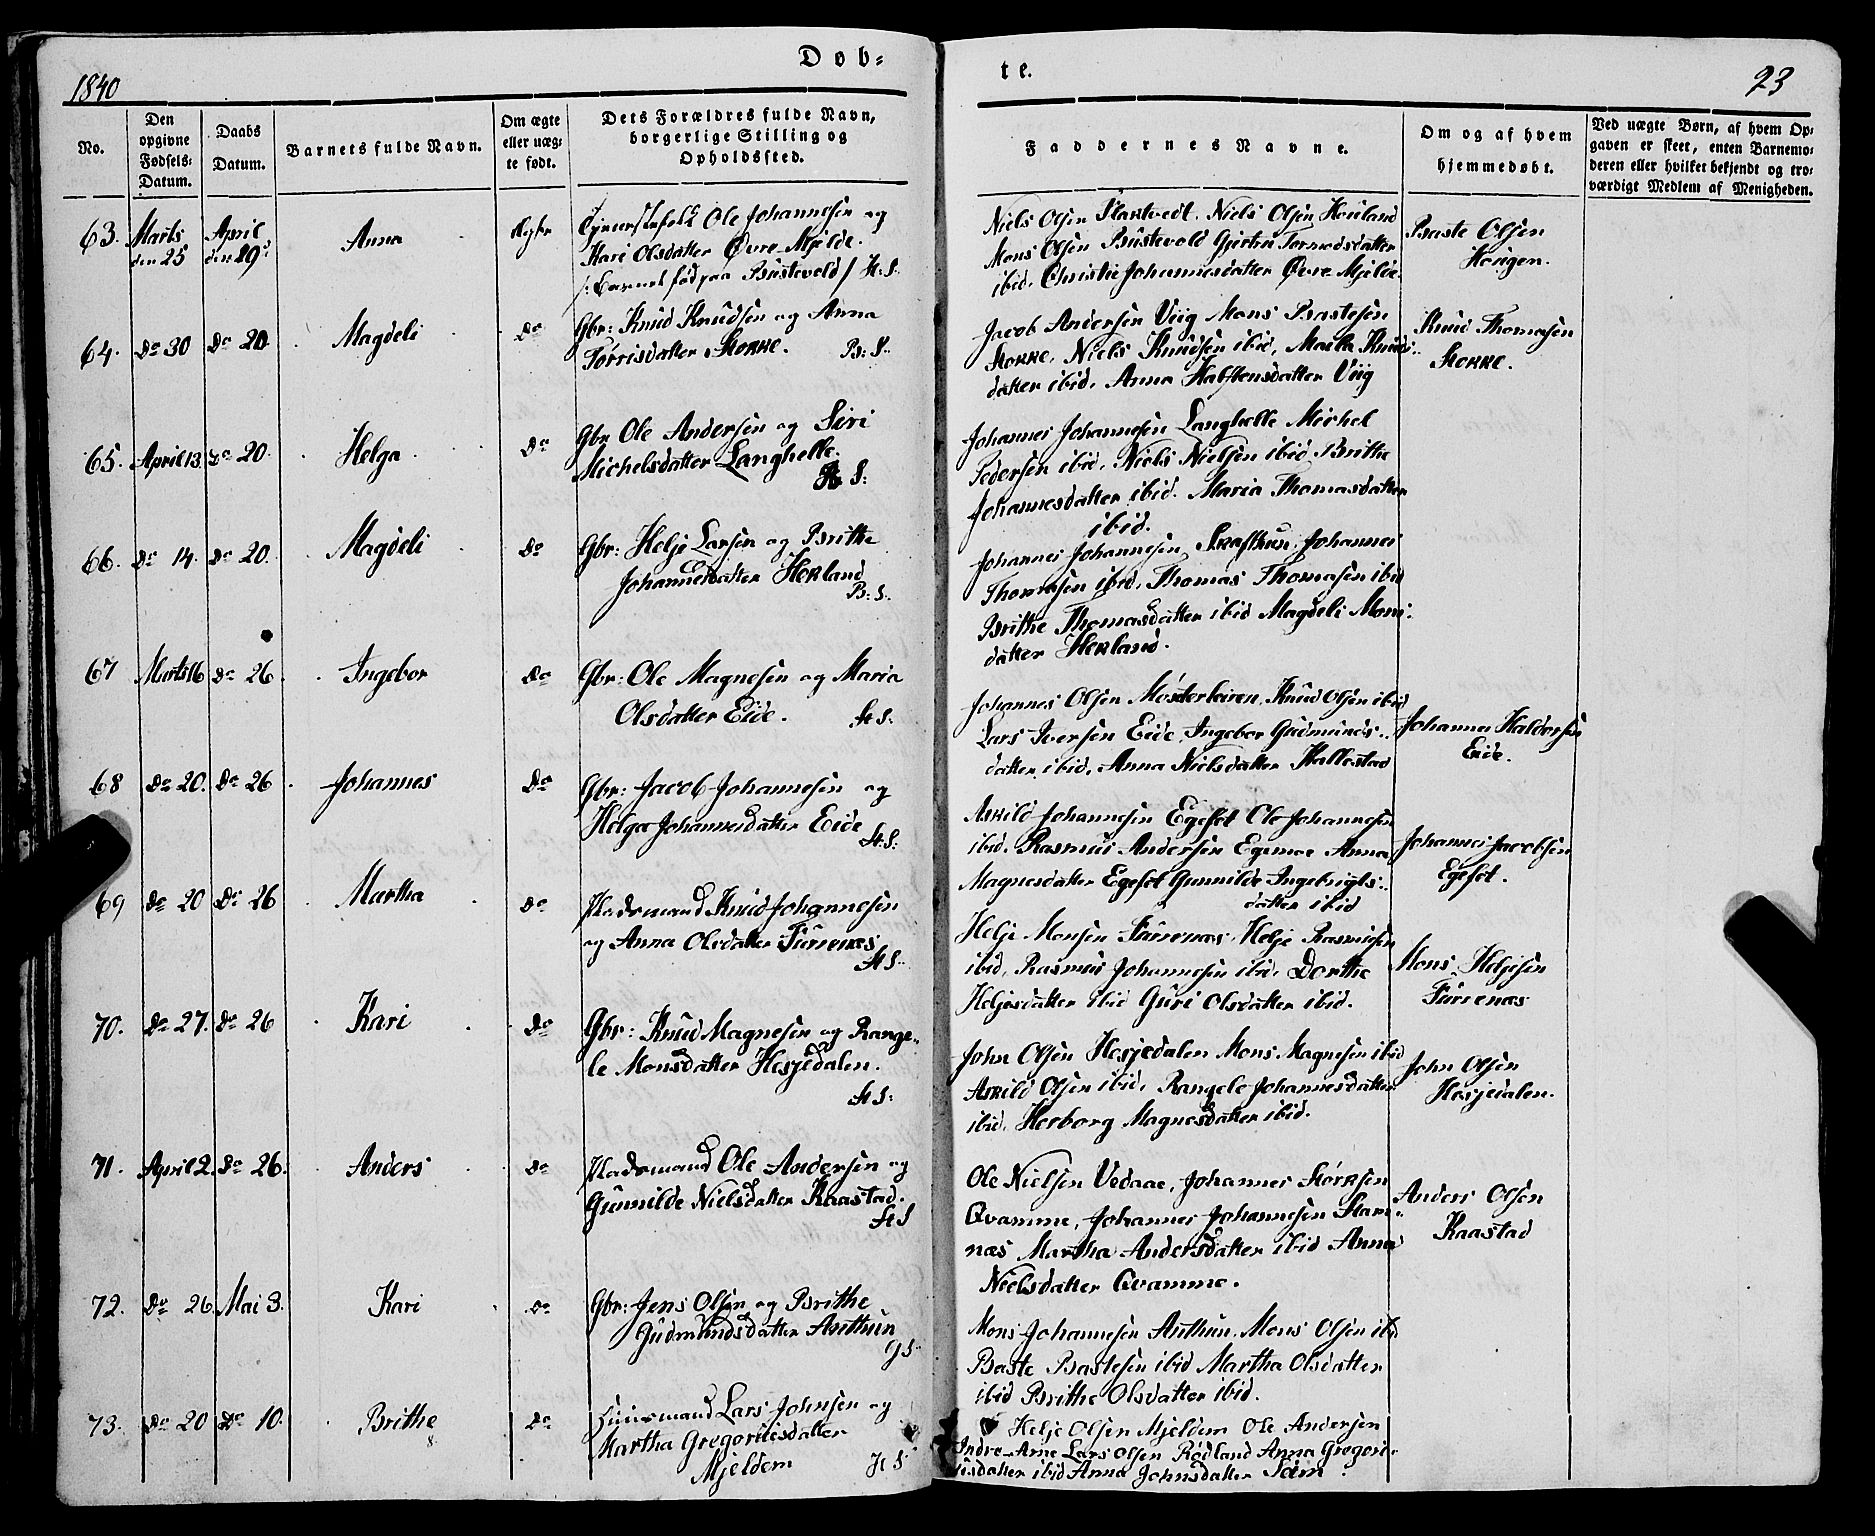 1840
Døb-
te.
23
No.
Den opgivne Fødsels-Datum.
Daabs Datum.
Barnets fulde Navn.
Om ægte eller uægte født.
Dets Forældres fulde Navn, borgerlige Stilling og Opholdssted.
Faddernes Navne.
Om og af hvem hjemmedøbt.
Ved uægte Børn, af hvem Opgaven er skeet, enten Barnemoderen eller hvilket bekjendt og troværdigt Medlem af Menigheden.
63. Marts den 25 April den 19de Anna Ægte
Tjenestefolk Ole Johannesen og
Kari Olsdatter Øvre Mjelde.
/: Barnet fød paa Bustevold / H. S.
Niels Olsen Flaktvedt. Niels Olsen Houland
Mons Olsen Bustevold Gjertru Tormodsdatter
ibid. Christie Johannesdatter Øvre Mjelde
Baste Olsen
Hougen.
64. Do 30 Do 20 Magdeli Do
Gbr: Knud Knudsen og Anna
Tørrisdatter Stokke. B: S:
Jacob Andersen Viig Mons Bastesen
Stokke, Niels Knudsen ibid, Marta Knuds-
datter ibid. Anna Halstensdatter Viig
Knud Thomasen
Stokke.
65. April 13 Do 20. Helga Do
Gbr Ole Andersen og Siri
Michelsdatter Langhelle.
H S:
Johannes Johannesen Langhelle Michel
Pedersen ibid. Niels Nielsen ibid. Brithe
Johannesdatter ibid. Maria Thomasdatter
ibid.
66. Do 14. Do 20. Magdeli Do
Gbr: Helje Larsen og Brithe
Johannesdatter Herland
B: S:
Johannes Johannesen Skafthun. Johannes
Thomasen ibid. Thomas Thomasen ibid
Brithe Thomasdatter ibid Magdeli Mons-
datter Herland.
67 Marts 16 Do 26. Ingebor Do
Gbr: Ole Magnesen og Maria
Olsdatter Eide. H S:
Johannes Olsen Mosterleiren. Knud Olsen ibid
Lars Iversen Eide, Ingebor Gudmunds-
datter ibid. Anna Nielsdatter Hallestad
Johannes Haldorsen
Eide.
68 Do 20. Do 26 Johannes Do
Gbr: Jacob Johannesen og
Helga Johannesdatter Eide
H. S:
Askild Johannesen Egeset Ole Johannesen
ibid. Rasmus Andersen Egemoe Anna
Magnesdatter Egeset Gunnilde Ingebrigts-
datter ibid
Johannes Jacobsen
Egeset.
69 Do 20 Do 26 Martha Do
Pladsmand Knud Johannesen
og Anna Olsdatter Furrenæs
H S:
Helje Monsen Furrenæs. Helje Rasmusen
ibid, Rasmus Johannesen ibid. Dorthe
Heljesdatter ibid Guri Olsdatter ibid.
Mons Heljesen
Furrenæs
70. Do 27. Do 26 Kari Do
Gbr: Knud Magnesen og Range-
le Monsdatter Hesjedalen.
H S:
John Olsen Hesjedalen Mons Magnesen ibid
Askild Olsen ibid, Rangele Johannesdatter
ibid. Herborg Magnesdatter ibid.
John Olsen
Hesjedalen.
71. April 2. Do 26. Anders Do
Pladsmand Ole Andersen og
Gunnilde Nielsdatter Raastad.
H S
Ole Nielsen Vedaae, Johannes Størksen
Qvamme, Johannes Johannesen Stam-
næs Martha Andersdatter ibid Anna
Nielsdatter Qvamme.
Anders Olsen
Raastad
72. Do 26. Mai 3. Kari Do
Gbr: Jens Olsen og Brithe
Gudmundsdatter Arthun
G S
Mons Johannesen Arthun. Mons Olsen ibid
Baste Bastesen ibid Martha Olsdatter
ibid Brithe Olsdatter ibid.
73. Do 20 Do 10. Brithe Do
Huusmand Lars Johnsen og
Martha Gregoriusdatter
Mjeldem H S
Helje Olsen Mjeldem Ole Andersen
Indre-Arne Lars Olsen Rødland Anna Gregori-
usdatter ibid Anna Johnsdatter